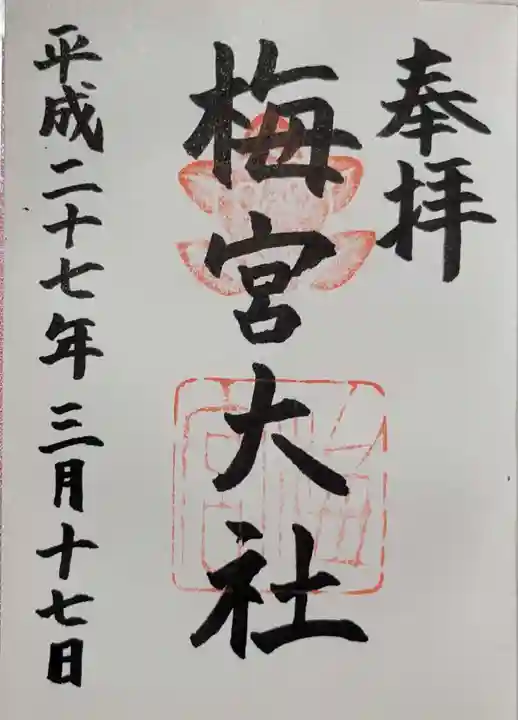 奉拝
梅宮大社
平成二十七年三月十七日